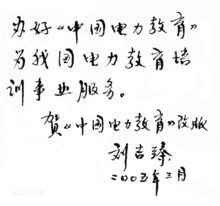 办好《中国电力教育》
为我国电力教育培
训事业服务。
贺《中国电力教育》改版
刘吉臻
二〇〇五年二月